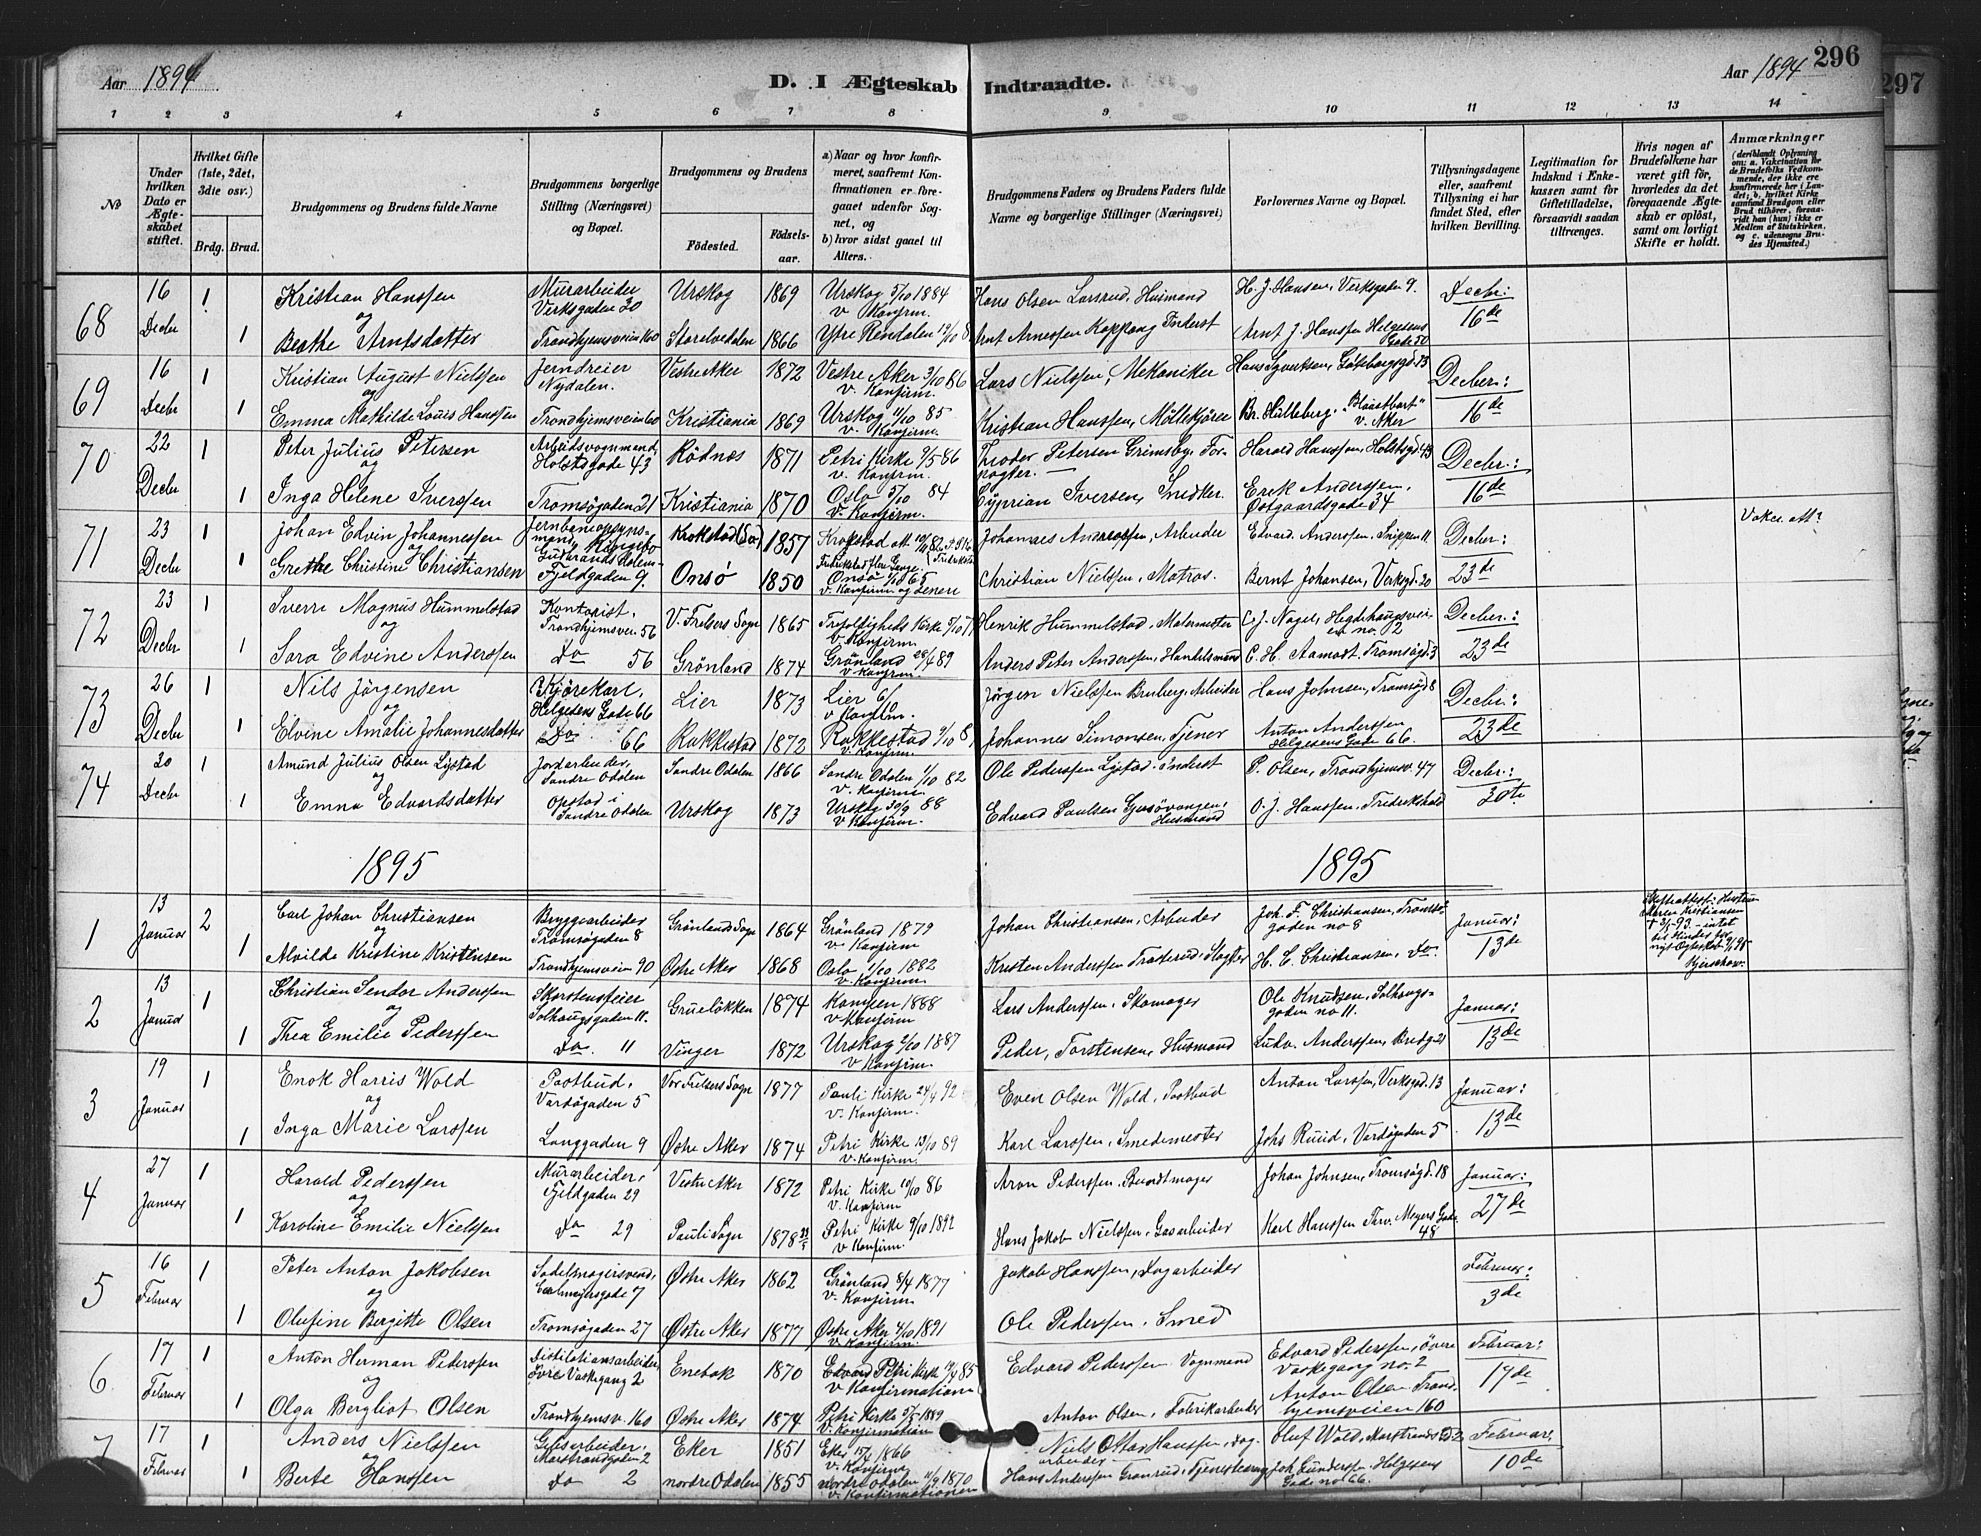 296
297
Aar 1894
D. I Ægteskab Indtraadte.
Aar 1894
1 2 3 4 5 6 7 8 9 10 11 12 13 14
No
Under hvilken Dato er Ægteskabet stiftet.
Hvilket Gifte (1ste, 2det, 3die osv.)
Brdg. Brud.
Brudgommens og Brudens fulde Navne
Brudgommens borgerlige Stilling (Næringsvei) og Bopæl.
Brudgommens og Brudens
Fødested.
Fødselsaar.
a) Naar og hvor konfirmeret, saafremt Konfirmationen er foregaaet udenfor Sognet, og
b) hvor sidst gaaet til Alters.
Brudgommens Faders og Brudens Faders fulde Navne og borgerlige Stillinger (Næringsvei)
Forlovernes Navne og Bopæl.
Tillysningsdagene eller, saafremt Tillysning ei har fundet Sted, efter hvilken Bevilling.
Legitimation for Indskud i Enkekassen samt for Giftetilladelse, forsaavidt saadan tiltrænges.
Hvis nogen af Brudefolkene har været gift før, hvorledes da det foregaaende Ægteskab er opløst, samt om lovligt Skifte er holdt.
Anmærkninger
(deriblandt Oplysning om: a. Vakcination for de Brudefolks Vedkommende, der ikke ere konfirmerede her i Landet; b. hvilket Kirkesamfund Brudgom eller Brud tilhører, forsaavidt han (hun) ikke er Medlem af Statskirken, og c. udensogns Brudes Hjemsted.)
68 16 Decbr 1 Kristian Hanssen Murarbeider Verksgaden 30 Urskog 1869 Urskog 5/10 1884 v. Konfirm. Hans Olsen Larsrud, Husmand H. J. Hansen, Verksgaden 9. Decbr: 16de
og
1 Berthe Arntsdatter Trondhjemsveien 160 Storelvedalen 1866 Ytre Rendalen Arnt Arnessen Koppang Inderst Arnt J. Hanssen Helgesens Gade 50
69 16 Decbr 1 Kristian August Nielssen Jerndreier Nydalen. Vestre Aker 1872 Vestre Aker 3/10 86 v. Konfirm. Lars Nielssen, Mekaniker Hans Syvertsen, Gøteborggd. 13 Decber: 16de
og
1 Emma Mathilde Louis Hanssen Trondhjemsveien 60 Kristiania 1869 Urskog 11/10 85 v. Konfirm. Kristian Hanssen, Møllekjører Br. Hulleberg, v. Aker
70 22 Decbr 1 Peter Julius Petersen Arbeidsvognmand, Holstsgade 43 Rödnes 1871 Petri Kirke 9/5 86 v. Konfirm. Theodor Petersen Grimsby, Forpagter. Harald Hanssen, Holstsgd. 43 Decbr: 16de
og
1 Inga Helene Iverssen Tromsøgaden 21 Kristiania 1870 Oslo 5/10 84 v. Konfirm. Cyprian Iversen, Snedker Erik Anderssen, Østgaardsgade 34
71 23 Decbr 1 Johan Edvin Johannessen Krokstad 1857 Krokstad Johannes Anderssen, Arbeider Edvard Anderssen, Snippen 11 Decber: 23de Vakc. att?
og
1 Grethe Christine Christiansen Fjeldgaden 9. Onsö 1850 Onsö 1/10 65 v. Konfirm og senere Christian Nielsen, Matros. Bernt Johansen, Verksgd. 20
72 23 Decbr 1 Sverre Magnus Hummelstad Kontorist, Trondhjemsvei 56 V. Frelsers Sogn 1865 Trefoldigheds Kirke v. Konfirm Henrik Hummelstad, Malermester C. J. Nagel, Hegdehaugsveien no. 72 Decbr: 23de
og
1 Sara Edvine Anderssen Do 56 Grönland 1874 Grönland 28/4 89 v. Konfirm. Anders Peter Anderssen, Handelsmand C. H. Aamodt, Tromsøgd. 3
73 26 Decbr 1 Nils Jörgensen Kjörekarl, Helgesens Gade 66 Lier 1873 Lier v. Konfirm. Jörgen Nielssen Bruberg, Arbeider Hans Johnsen, Tromsøgd 8 Decbr: 23de
og
1 Elvine Amalie Johannesdatter Do 66 Rakkestad 1872 Rakkestad v. Konfirm Johannes Simonsen, Tjener Anton Anderssen Helgesens Gade 66.
74 30 Decbr 1 Amund Julius Olsen Lystad Jordarbeider, Søndre Odalen Søndre Odalen 1866 Søndre Odalen 1/10 82 v. Konfirm Ole Pederssen Lystad, Inderst P. Olsen, Trondhjemsv. 47 Decbr: 30te
og
1 Emma Edvardsdatter Opstad i Søndre Odalen Urskog 1873 Urskog 30/9 88 v. Konfirm. Edvard Paulsen Husmand O. J. Hanssen, Frederikshald
1895 1895
1 13 Januar 2 Carl Johan Christiansen Bryggearbeider Tromsøgaden 8 Grönlands Sogn 1864 Grönland 1879 v. Konfirm Johan Christiansen, Arbeider Joh. F. Christiansen, Tromsøgaden no 8 Januar: 13de Skifteattest: Hustruen Maren Kristiansen
og
1 Alvilde Kristine Kristensen Trondhjemsveien 90 Østre Aker 1868 Oslo 1/10 1882 v. Konfirm Kristen Anderssen Trosterud, Slagter H. C. Christiansen, do
2 13 Januar 1 Christian Sendor Anderssen Skorstensfeier Solhougsgaden 11. Gruelökken 1874 Kampen 1888 v. Konfirm Lars Anderssen, Skomager Ole Knudsen, Solhaugsgaden no 11. Januar: 13de
og
1 Thea Emilie Pederssen do. 11 Vinger 1872 Urskog 2/10 1887 v Konfirm. Peder Torstensen, Husmand Ludv. Anderssen, Bredg 21
3 19 Januar 1 Enok Harris Wold Postbud, Vardøgaden 5 Vor Frelsers Sogn 1877 Pauli Kirke 24/4 92 v. Konfirm. Even Olsen Wold, Postbud Anton Larssen, Verksgad. 13 Januar: 13de
og
1 Inga Marie Larssen Langgaden 9 Østre Aker 1874 Petri Kirke 13/10 89 v. Konfirm. Karl Larssen, Smedemester Johs Ruud, Vardøgaden 5
4 27 Januar 1 Harald Pederssen Murarbeider, Fjeldgaden 29 Vestre Aker 1872 Petri Kirke 10/10 86 v. Konfirm Aron Pederssen, Buntmager Johan Johnsen, Tromsøgd. 18 Januar: 27de
og
1 Karoline Emilie Nielssen do 29 Pauli Sogn 1878 Petri Kirke 9/10 1892 v Konfirm. Hans Jakob Nielssen, Gasarbeider Karl Hanssen Thv. Meyers Gade 48
5 16 Februar 1 Peter Anton Jakobsen Sadelmagersvend, 7 Østre Aker 1862 Grönland 8/4 1877 v. Konfirm Jakob Hanssen, Dagarbeider Februar: 3de
og
1 Olufine Bergitte Olsen Tromsøgaden 27 Østre Aker 1877 Østre Aker 4/10 1891 v. Konfirm Ole Pederssen, Smed
6 17 Februar 1 Anton Herman Pederssen Distilationsarbeider, Övre Vaskegang 2 Enebak 1870 Petri Kirke 19/4 85 v Konfirmationen Edvard Pederssen Vognmand Edvard Pederssen, övre Vaskegang no. 2 Februar: 17de
og
1 Olga Bergliot Olsen Trondhjemsv. 160 Østre Aker 1874 Petri Kirke 5/5 1889 v. Konfirmation Anton Olsen, Fabrikarbeider Anton Olsen Trondhjemsveien 160
7 17 Februar 1 Anders Nielssen Gibsarbeider, Marstrandgaden 2 Eker 1851 Eker 15/7 1866 v. Konfirm Niels Ottar Hanssen, Dagarbeider Oluf Wold, Marstrandsgd 2 Februar: 10de
og
1 Berte Hanssen do 2 nordre Odalen 1855 nordre Odalen 11/9 1870 v. Konfirmationen Hans Anderssen Granrud, Joh Gunderssen Helgesens Gade no 66.